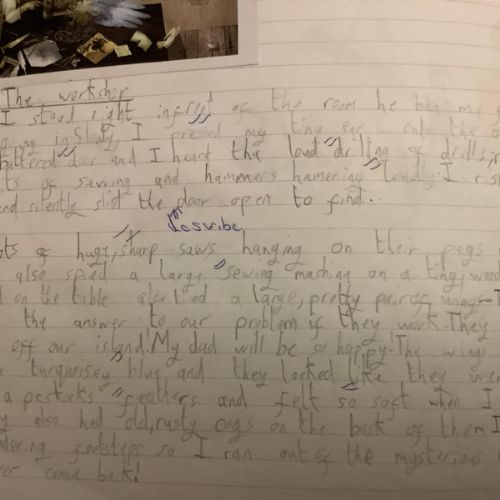 The workshop
I stood right infront of the room he ban me
going in. Slowly, I pressed my tiny ear out the
battered door and I heard the loud drilling of drills,
of sewing and hammers hamering loudly. I
and silently slid the door open to find...
desvibe
of huge, sharp saws hanging on their pegs
also spied a large sewing maching on a tiny,
on the table also lied a large, pretty pair of wings-
the answer to our problem if they work. They
off our island! My dad will be so happy. The wings
turquoisey blue and they looked like they
a percocks feathers and felt so soft when I
also had old, rusty cogs on the back of them I
footsteps so I ran out of the mysterious
come back!